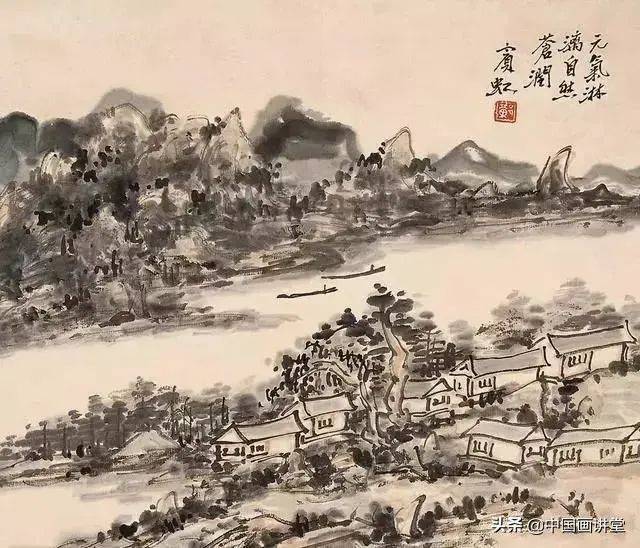 元氣淋
漓自然
蒼潤
賓虹
头条@中国画讲堂